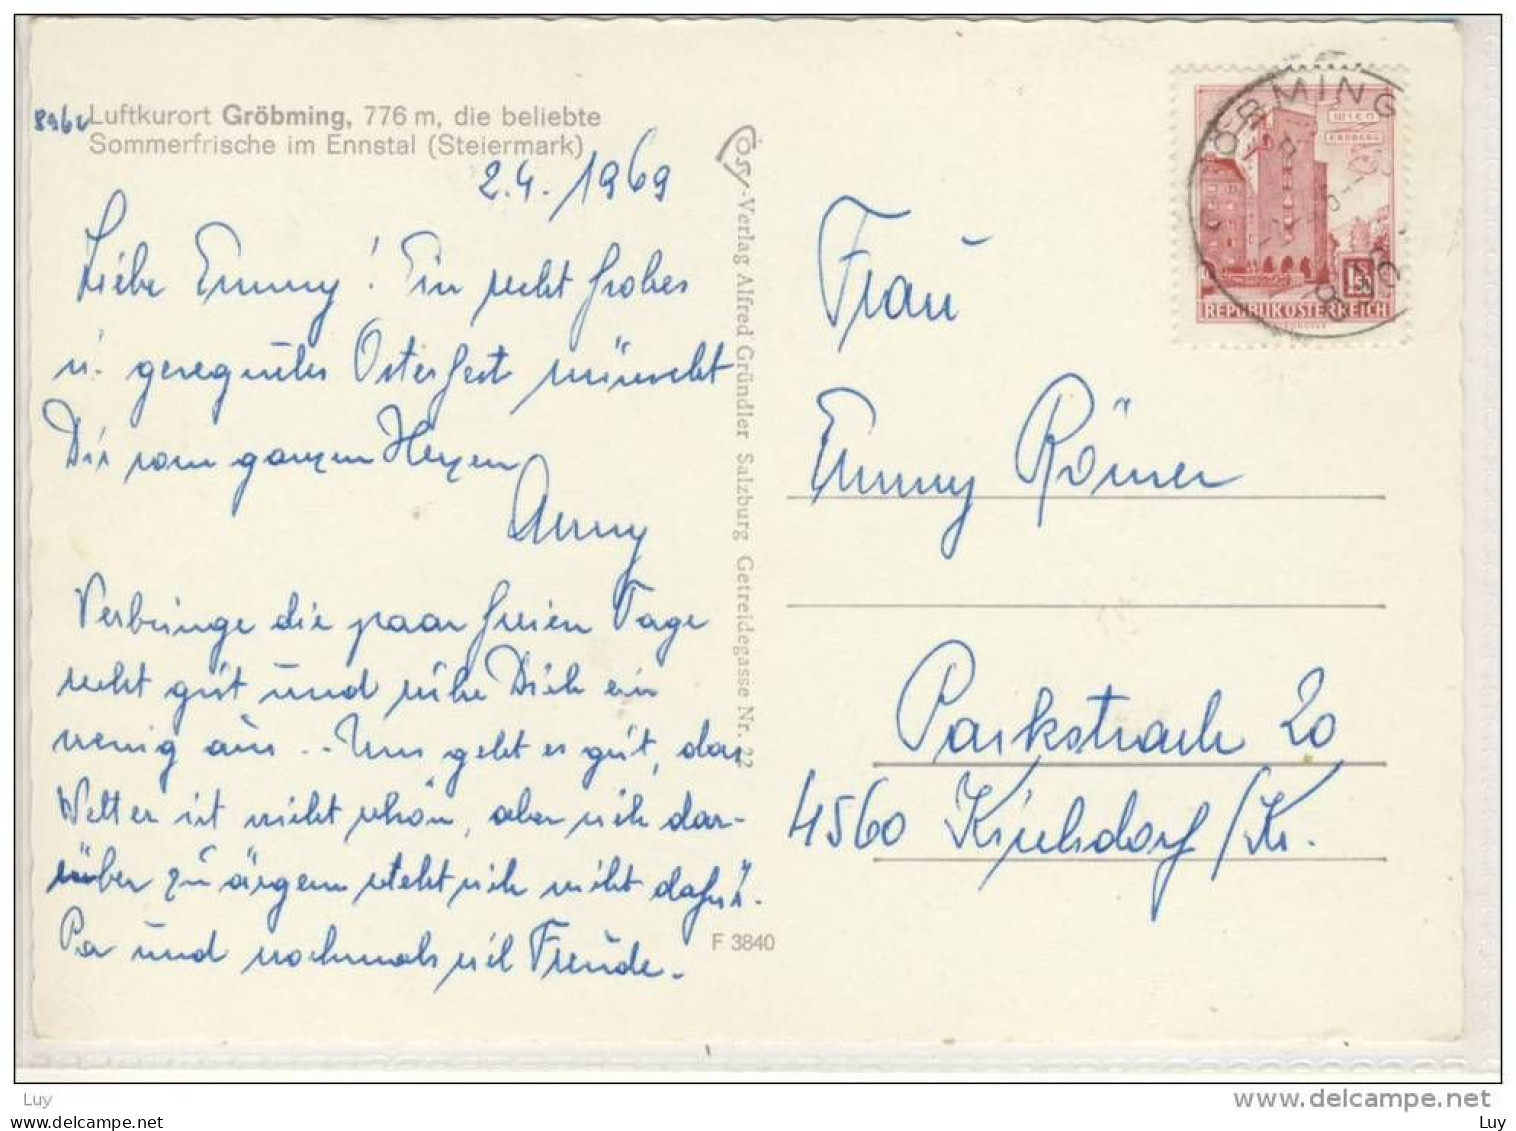 Luftkurort Gröbming, 776 m, die beliebte
Sommerfrische im Ennstal (Steiermark)
2.4.1969
Liebe Emmy! Ein recht frohes
u. gesegnetes Osterfest wünscht
Dir vom ganzen Herzen
Anny
Verbringe die paar freien Tage
recht gut und ruhe Dich ein
wenig aus. Uns geht es gut, das
Wetter ist nicht schön, aber sich dar-
über zu ärgern steht sich nicht dafür.
Pa und nochmals viel Freude.
Össy-Verlag Alfred Gründler Salzburg Getreidegasse Nr. 22
F 3840
GRÖBMING
WIEN
ERDBERG
REPUBLIK ÖSTERREICH
Frau
Emmy Römer
Parkstrasse 20
4560 Kirchdorf/Kr.
Luy
www.delcampe.net
luy-ansichtskarten.net
Luy